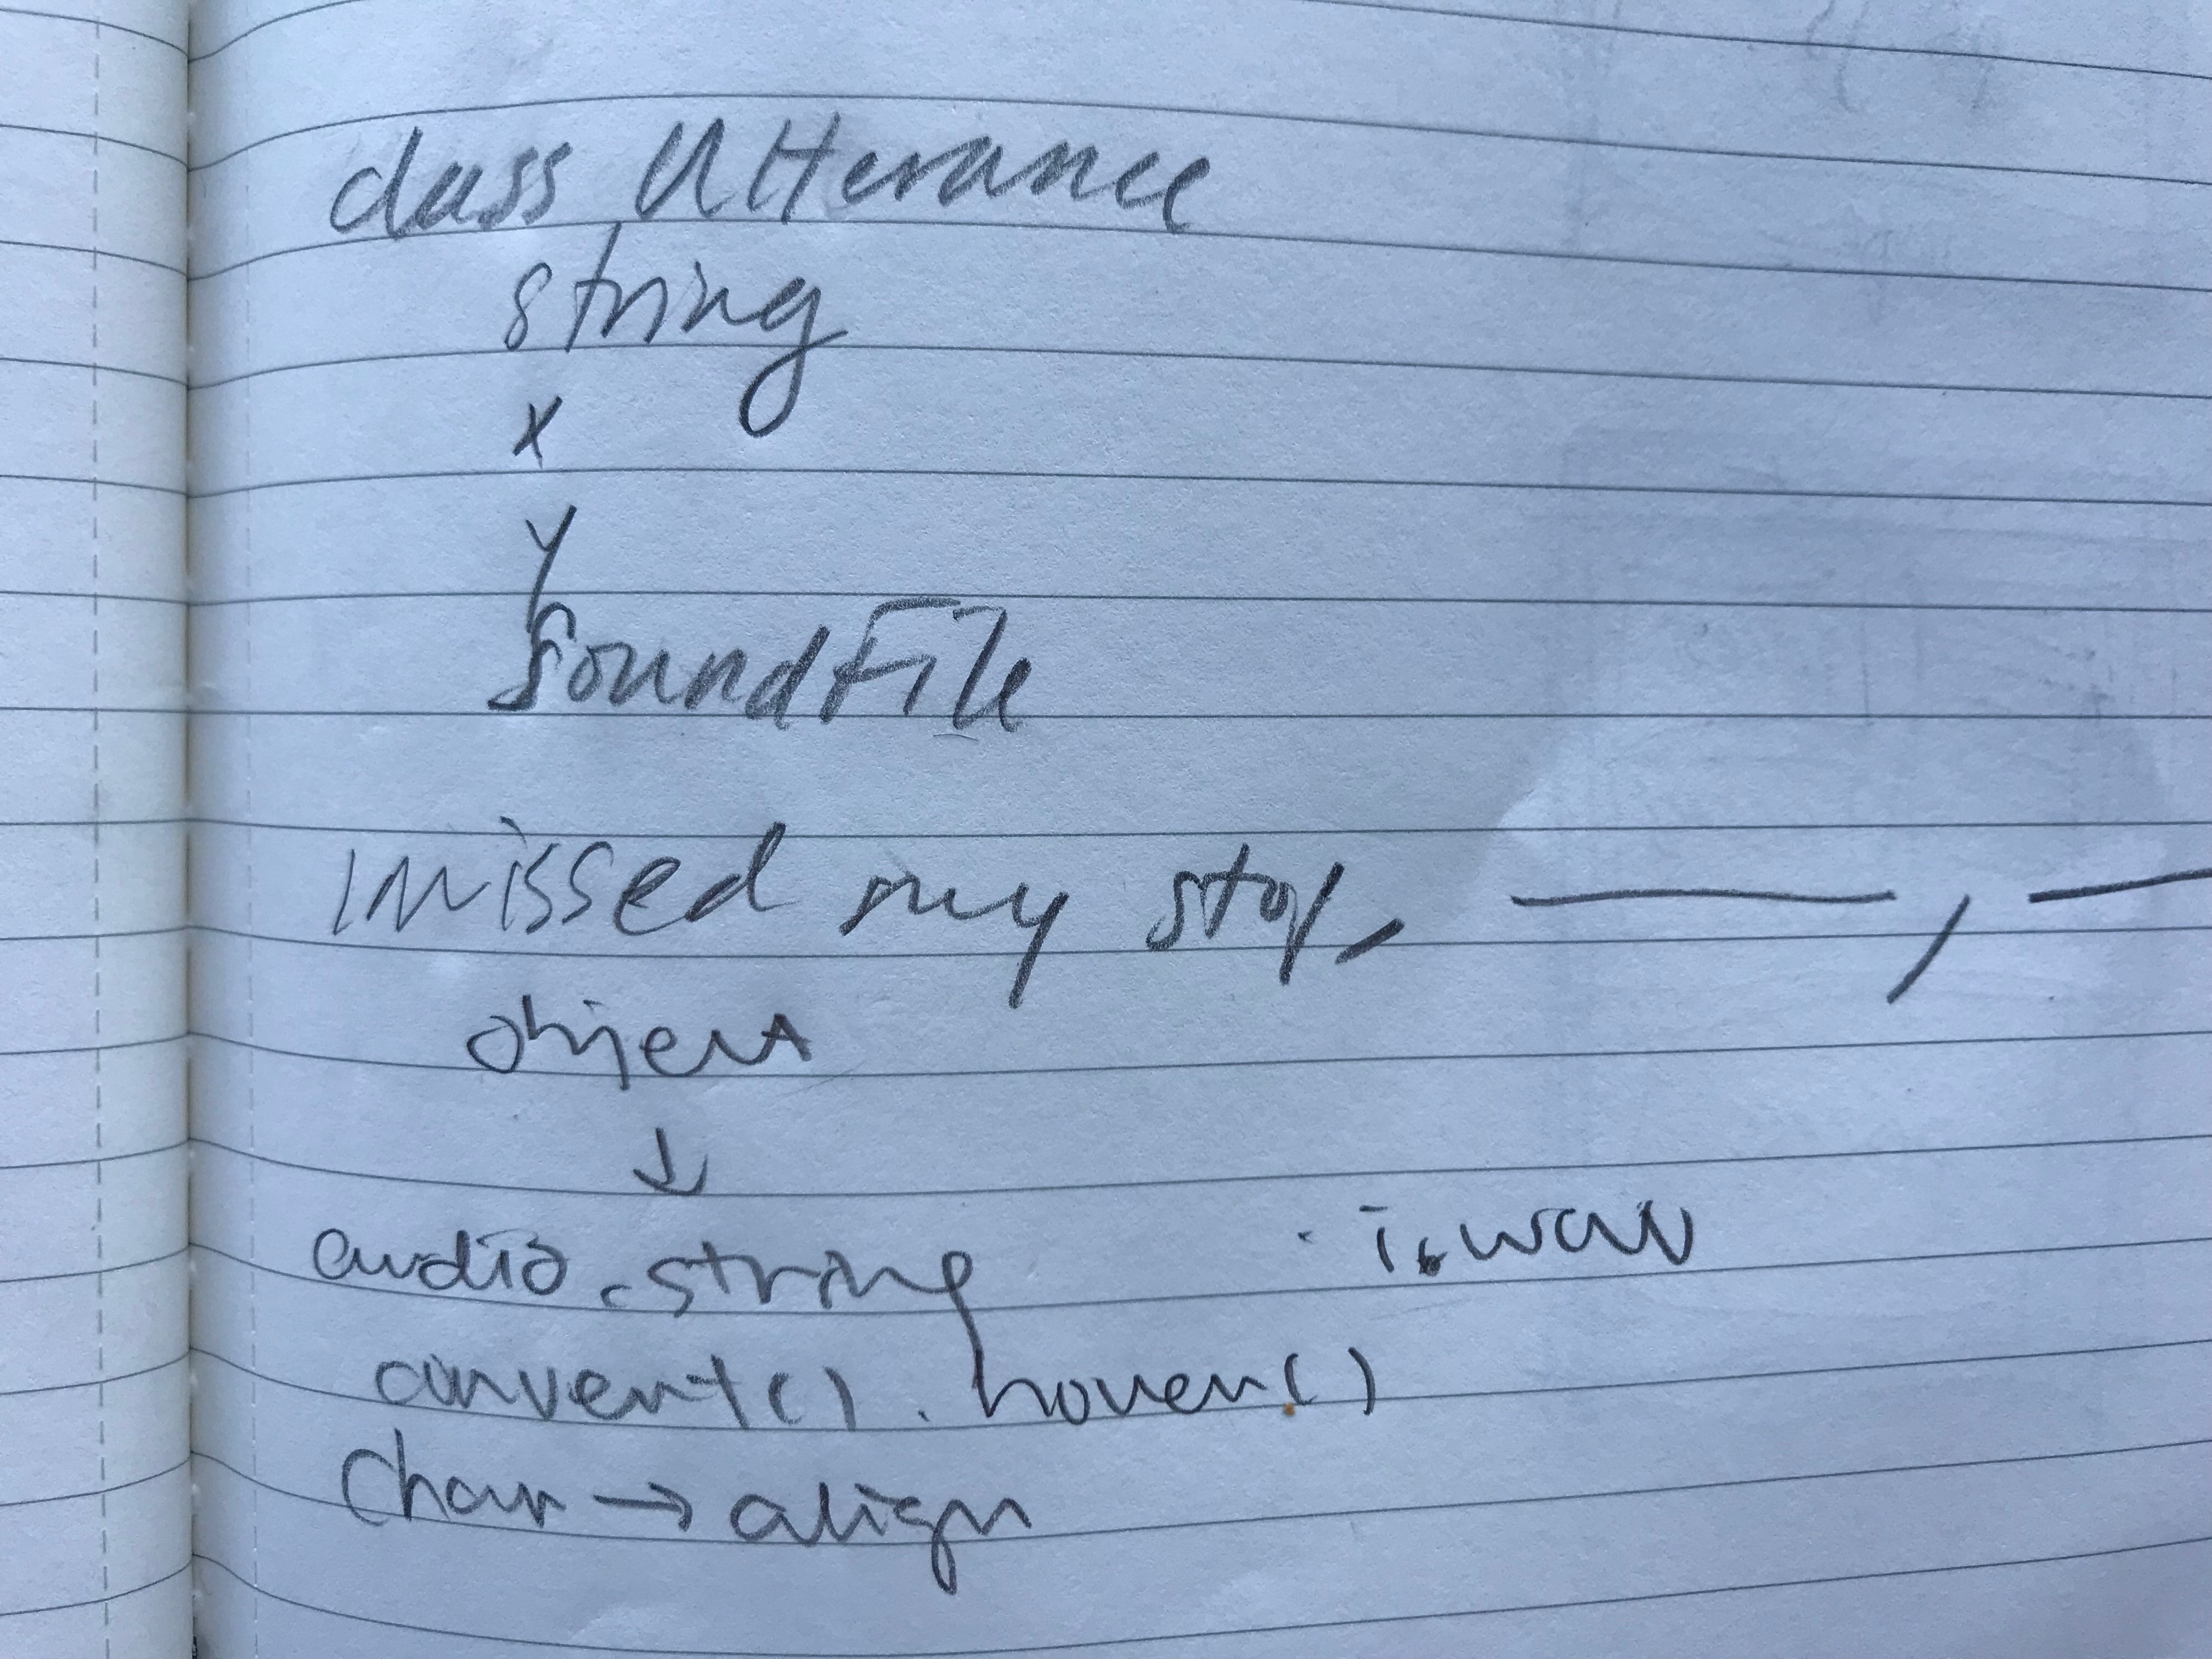 class Utterance
string
x
y
SoundFile
I missed my stop, ———, —
object
↓
audio.string · i.wav
convert(). hover()
Char → align